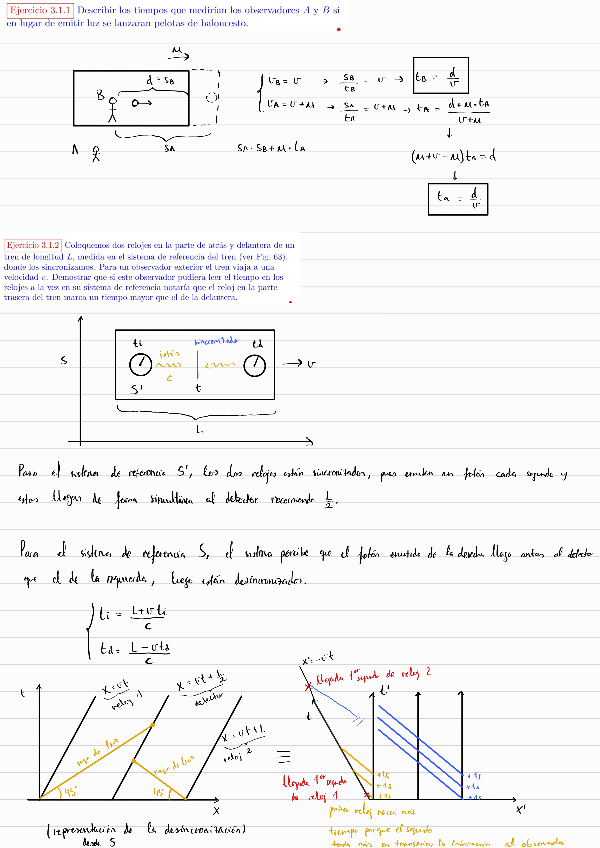 Ejercicio 3.1.1 Describir los tiempos que medirían los observadores A y B si
en lugar de emitir luz se lanzaran pelotas de baloncesto.
u
d = sB
B
A
sA
sA = sB + u · tA
vB = v → sB/tB = v → tB = d/v
vA = v + u → sA/tA = v + u → tA = (d + u · tA)/(v + u)
(u + v − u) tA = d
tA = d/v
Ejercicio 3.1.2 Coloquemos dos relojes en la parte de atrás y delantera de un
tren de longitud L, medida en el sistema de referencia del tren (ver Fig. 63),
donde los sincronizamos. Para un observador exterior el tren viaja a una
velocidad v. Demostrar que si este observador pudiera leer el tiempo en los
relojes a la vez en su sistema de referencia notaría que el reloj en la parte
trasera del tren marca un tiempo mayor que el de la delantera.
S
ti
fotón
c
sincronizados
td
v
S'
t
L
Para el sistema de referencia S', los dos relojes están sincronizados, pues emiten un fotón cada segundo y
estos llegan de forma simultánea al detector recorriendo L/2.
Para el sistema de referencia S, el sistema percibe que el fotón emitido de la derecha llega antes al detector
que el de la izquierda, luego están desincronizados.
ti = (L + v ti)/c
td = (L − v td)/c
t
x = vt
reloj 1
x = vt + L/2
detector
x = vt + L
reloj 2
rayo de luz
rayo de luz
45°
45°
x
(representación de la desincronización)
desde S
≡
x' = −vt
llegada 1er segundo de reloj 2
t
t'
llegada 1er segundo
de reloj 1
+1s
+1s
+1s
+1s
+1s
+1s
x'
primer reloj marca más
tiempo porque el segundo
tarda más en transmitir la información al observador